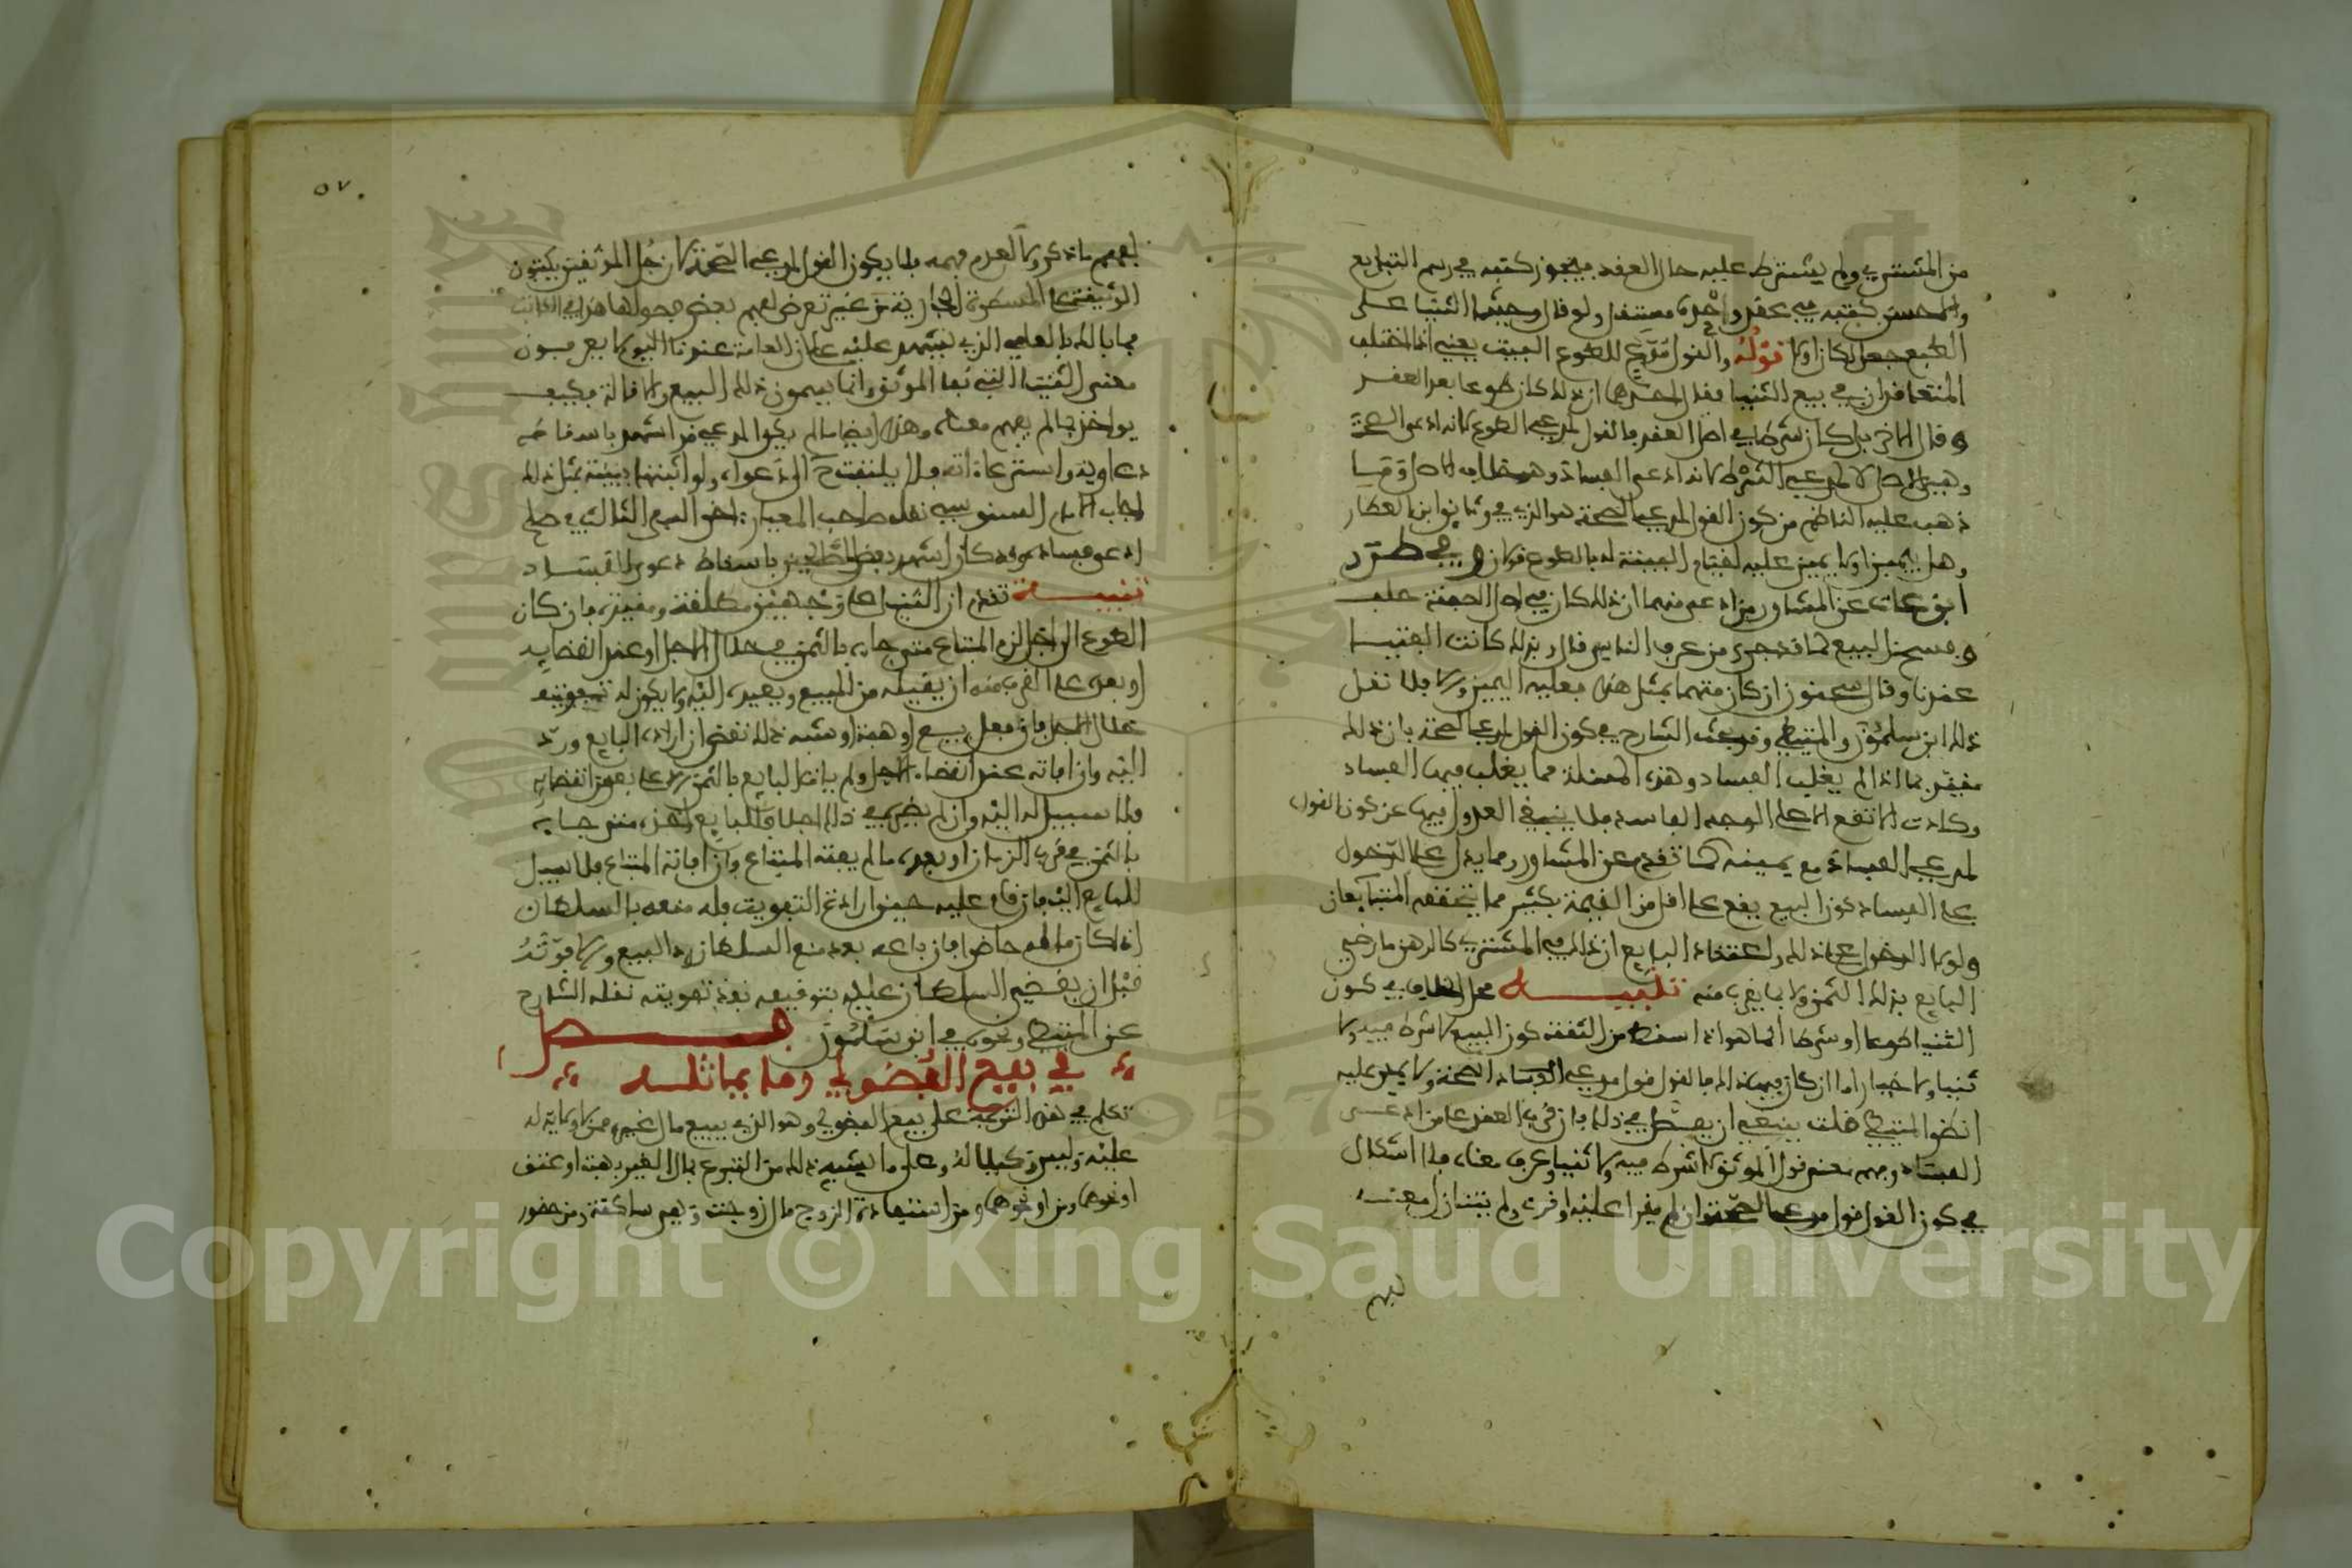 من المشتري ولم يشترط عليه حال العقد فيجوز كتبه في رسم التبايع
والاحسن كتبه في عقد واخره مستقل ولو قال وحيثما الثنيا على
الطوع جعل لكان اولى قوله والقول قول مدع للطوع البيت يعني اذا اختلف
المتعاقدان في بيع الثنيا فقال احدهما ان ذلك كان طوعا بعد العقد
وقال الاخر بل كان شرطا في اصل العقد فالقول لمدعي الطوع لانه ادعى الصحة
وهي الاصل لا لمدعي الشرط لانه ادعى الفساد وهو خلاف الاصل وما
ذهب عليه الناظم من كون القول لمدعي الصحة هو الذي في وثائق ابن العطار
وهل يمين او لا يمين عليه لقيام البينة له بالطوع قولان وفي طرر
ابن عات عن المشاور من ادعى منهما ان ذلك كان في اصل الصفقة حلف
وفسخ البيع لما قد جرى من عرف الناس قال وبذلك كانت الفتيا
عندنا وقال سحنون ان كان متهما بمثل هذا فعليه اليمين والا فلا نقل
ذلك ابن سلمون والمتيطي وقد بحث الشارح في كون القول لمدعي الصحة بان ذلك
مقيد بما اذا لم يغلب الفساد وهذه المسئلة مما يغلب فيها الفساد
وكادت لا تقع الا على الوجه الفاسد فلا ينبغي العدول فيها عن كون القول
لمدعي الفساد مع يمينه كما تقدم عن المشاور ومما يدل على الدخول
على الفساد كون البيع يقع على اقل من القيمة بكثير مما يتحققه المتبايعان
ولولا الدخول على ذلك واعتقاد البايع ان ذلك في المشتري كالرهن ما رضي
البايع بذلك الثمن ولا بما يقرب منه تنبيه محل الخلاف في كون
الثنيا طوعا او شرطا انما هو اذا اسقط من الثقة كون البيع لا شرط فيه ولا
ثنيا ولا خيار اما ان كان فيها ذلك فالقول قول مدعي الصحة ولا يمين عليه
انظر المتيطي قلت ينبغي ان يفصل في ذلك فان قرئ العقد على من ادعى
الفساد وفهم معنى قول الموثق لا شرط فيه ولا ثنيا وعرف معناه فلا اشكال
في كون القول قول مدعي الصحة وان لم يقرا عليه او قرئ ولم يتبين له معناه
لفهم
٥٧
لفهم ما ذكر ولا لعدم فهمه فلا يكون القول لمدعي الصحة لان جل الموثقين يكتبون
الوثيقة على المسطرة الجارية من غير تعرض لفهم بعض فصولها هذا في الكاتب
فما بالك بالعامي الذي يشهد عليه على ان العامة عندنا اليوم لا يعرفون
معنى الثنيا التي نفا الموثق وانما يسمون ذلك البيع والاقالة فكيف
يواخذ بما لم يفهم معناه وهذا ايضا ما لم يكن المدعي قد اشهد باسقاط
دعاويه واسترعاءاته فلا يلتفت ح الى دعواه ولو اثبتها ببينة بمثل ذلك
اجاب الامام السنوسي نقله صاحب المعيار اخر السفر الثالث في صلح
ادعي فساده وقد كان اشهد بعض المصالحين باسقاط دعوى الفساد
تنبيه تقدم ان الثنيا على وجهين مطلقة ومقيدة فان كان
الطوع الى اجل لزم المبتاع متى جاءه بالثمن في خلال الاجل او عند انقضايه
او بعده على القرب منه ان يقيله من المبيع ويعيده اليه ولا يكون له تفويته
خلال الاجل فان فعل ببيع او هبة او شبه ذلك نقض ان اراده البايع ورد
اليه وان افاته عند انقضاء الاجل ولم يات البايع بالثمن الا على بعد من انقضايه
فلا سبيل له اليه وان لم يضرب في ذلك اجلا فللبايع اخذه متى جاءه
بالثمن في قرب الزمان او بعده ما لم يفته المبتاع وان افاته المبتاع فلا سبيل
للبايع اليه فان قام عليه حين اراد التفويت فله منعه بالسلطان
اذا كان ماله حاضرا فان باعه بعد منع السلطان رد البيع وان فوته
قبل ان يقضي السلطان عليه بتوقيفه نفذ تفويته نقله الشارح
عن المتيطي ونحوه في ابن سلمون فصل
في بيع الفضولي وما يماثله
تكلم في هذه الترجمة على بيع الفضولي وهو الذي يبيع مال غيره ممن لا ولاية له
عليه وليس وكيلا له وعلى ما يشبه ذلك من التبرع بمال الغير بهبة او عتق
او نحوهما ومن استيفاء الزوج مال زوجته وهي ساكتة ومن حضور